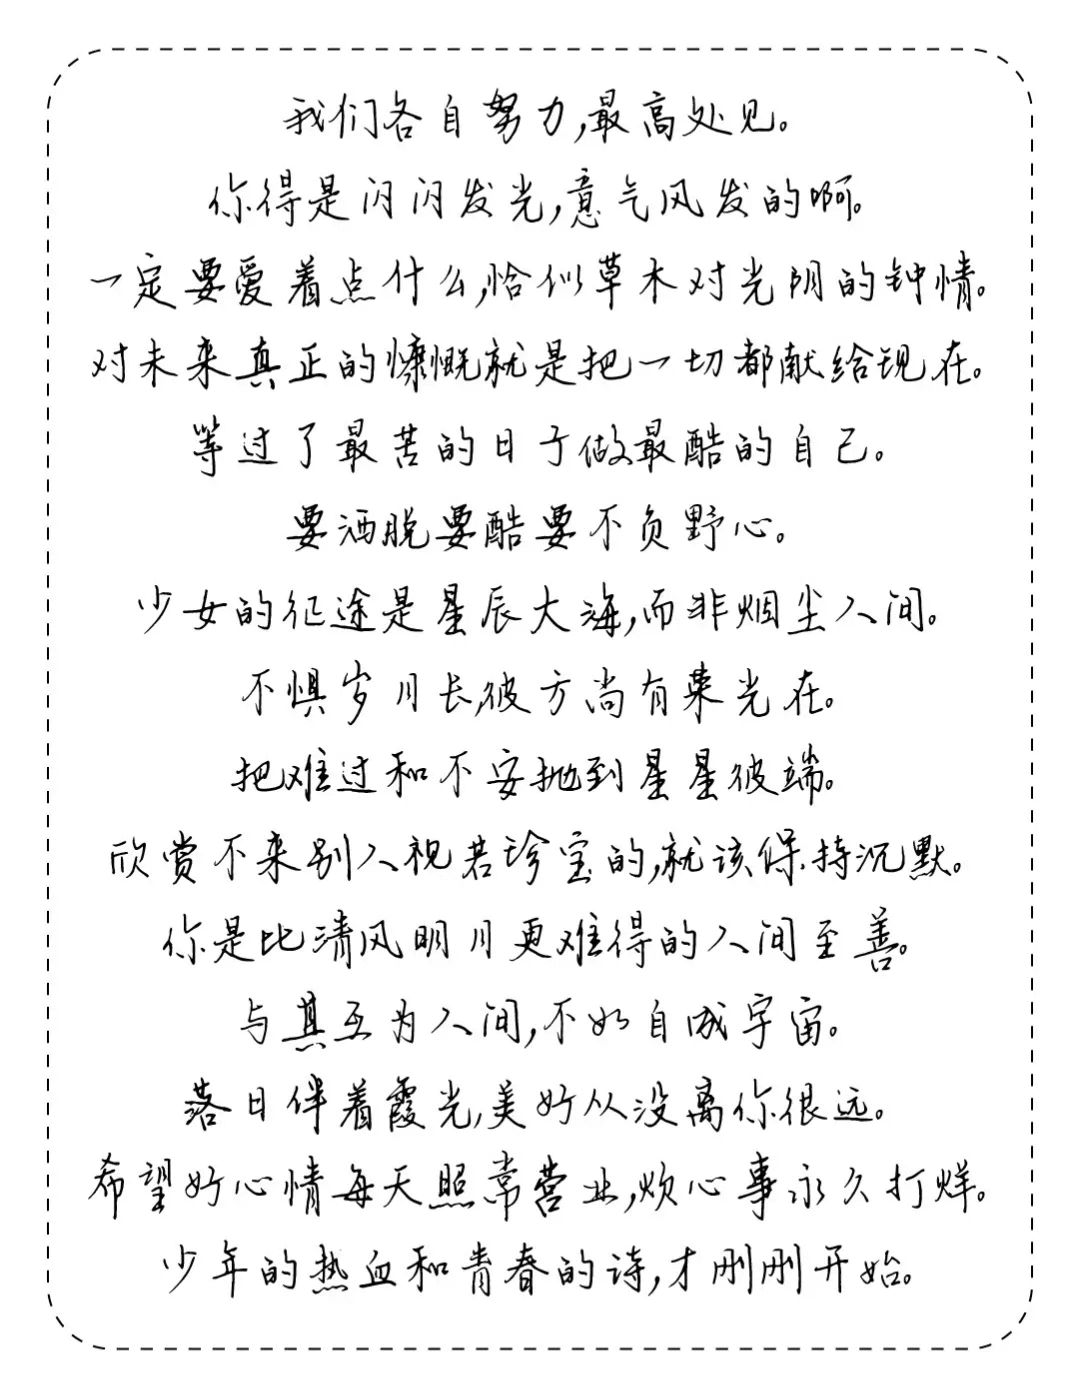 我们各自努力,最高处见。
你得是闪闪发光,意气风发的啊。
一定要爱着点什么,恰似草木对光阴的钟情。
对未来真正的慷慨就是把一切都献给现在。
等过了最苦的日子做最酷的自己。
要洒脱要酷要不负野心。
少女的征途是星辰大海,而非烟尘人间。
不惧岁月长,彼方尚有荣光在。
把难过和不安抛到星星彼端。
欣赏不来别人视若珍宝的,就该保持沉默。
你是比清风明月更难得的人间至善。
与其互为人间,不如自成宇宙。
落日伴着霞光,美好从没离你很远。
希望好心情每天照常营业,烦心事永久打烊。
少年的热血和青春的诗,才刚刚开始。